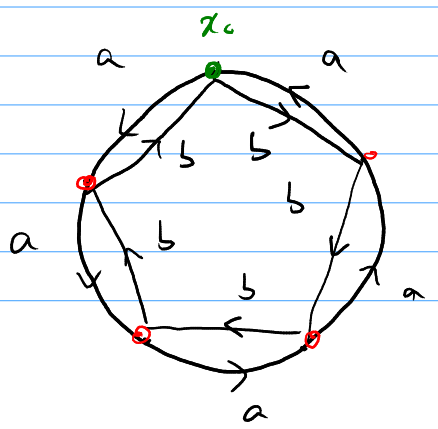 x₀
a
a
b
b
b
a
b
b
a
a